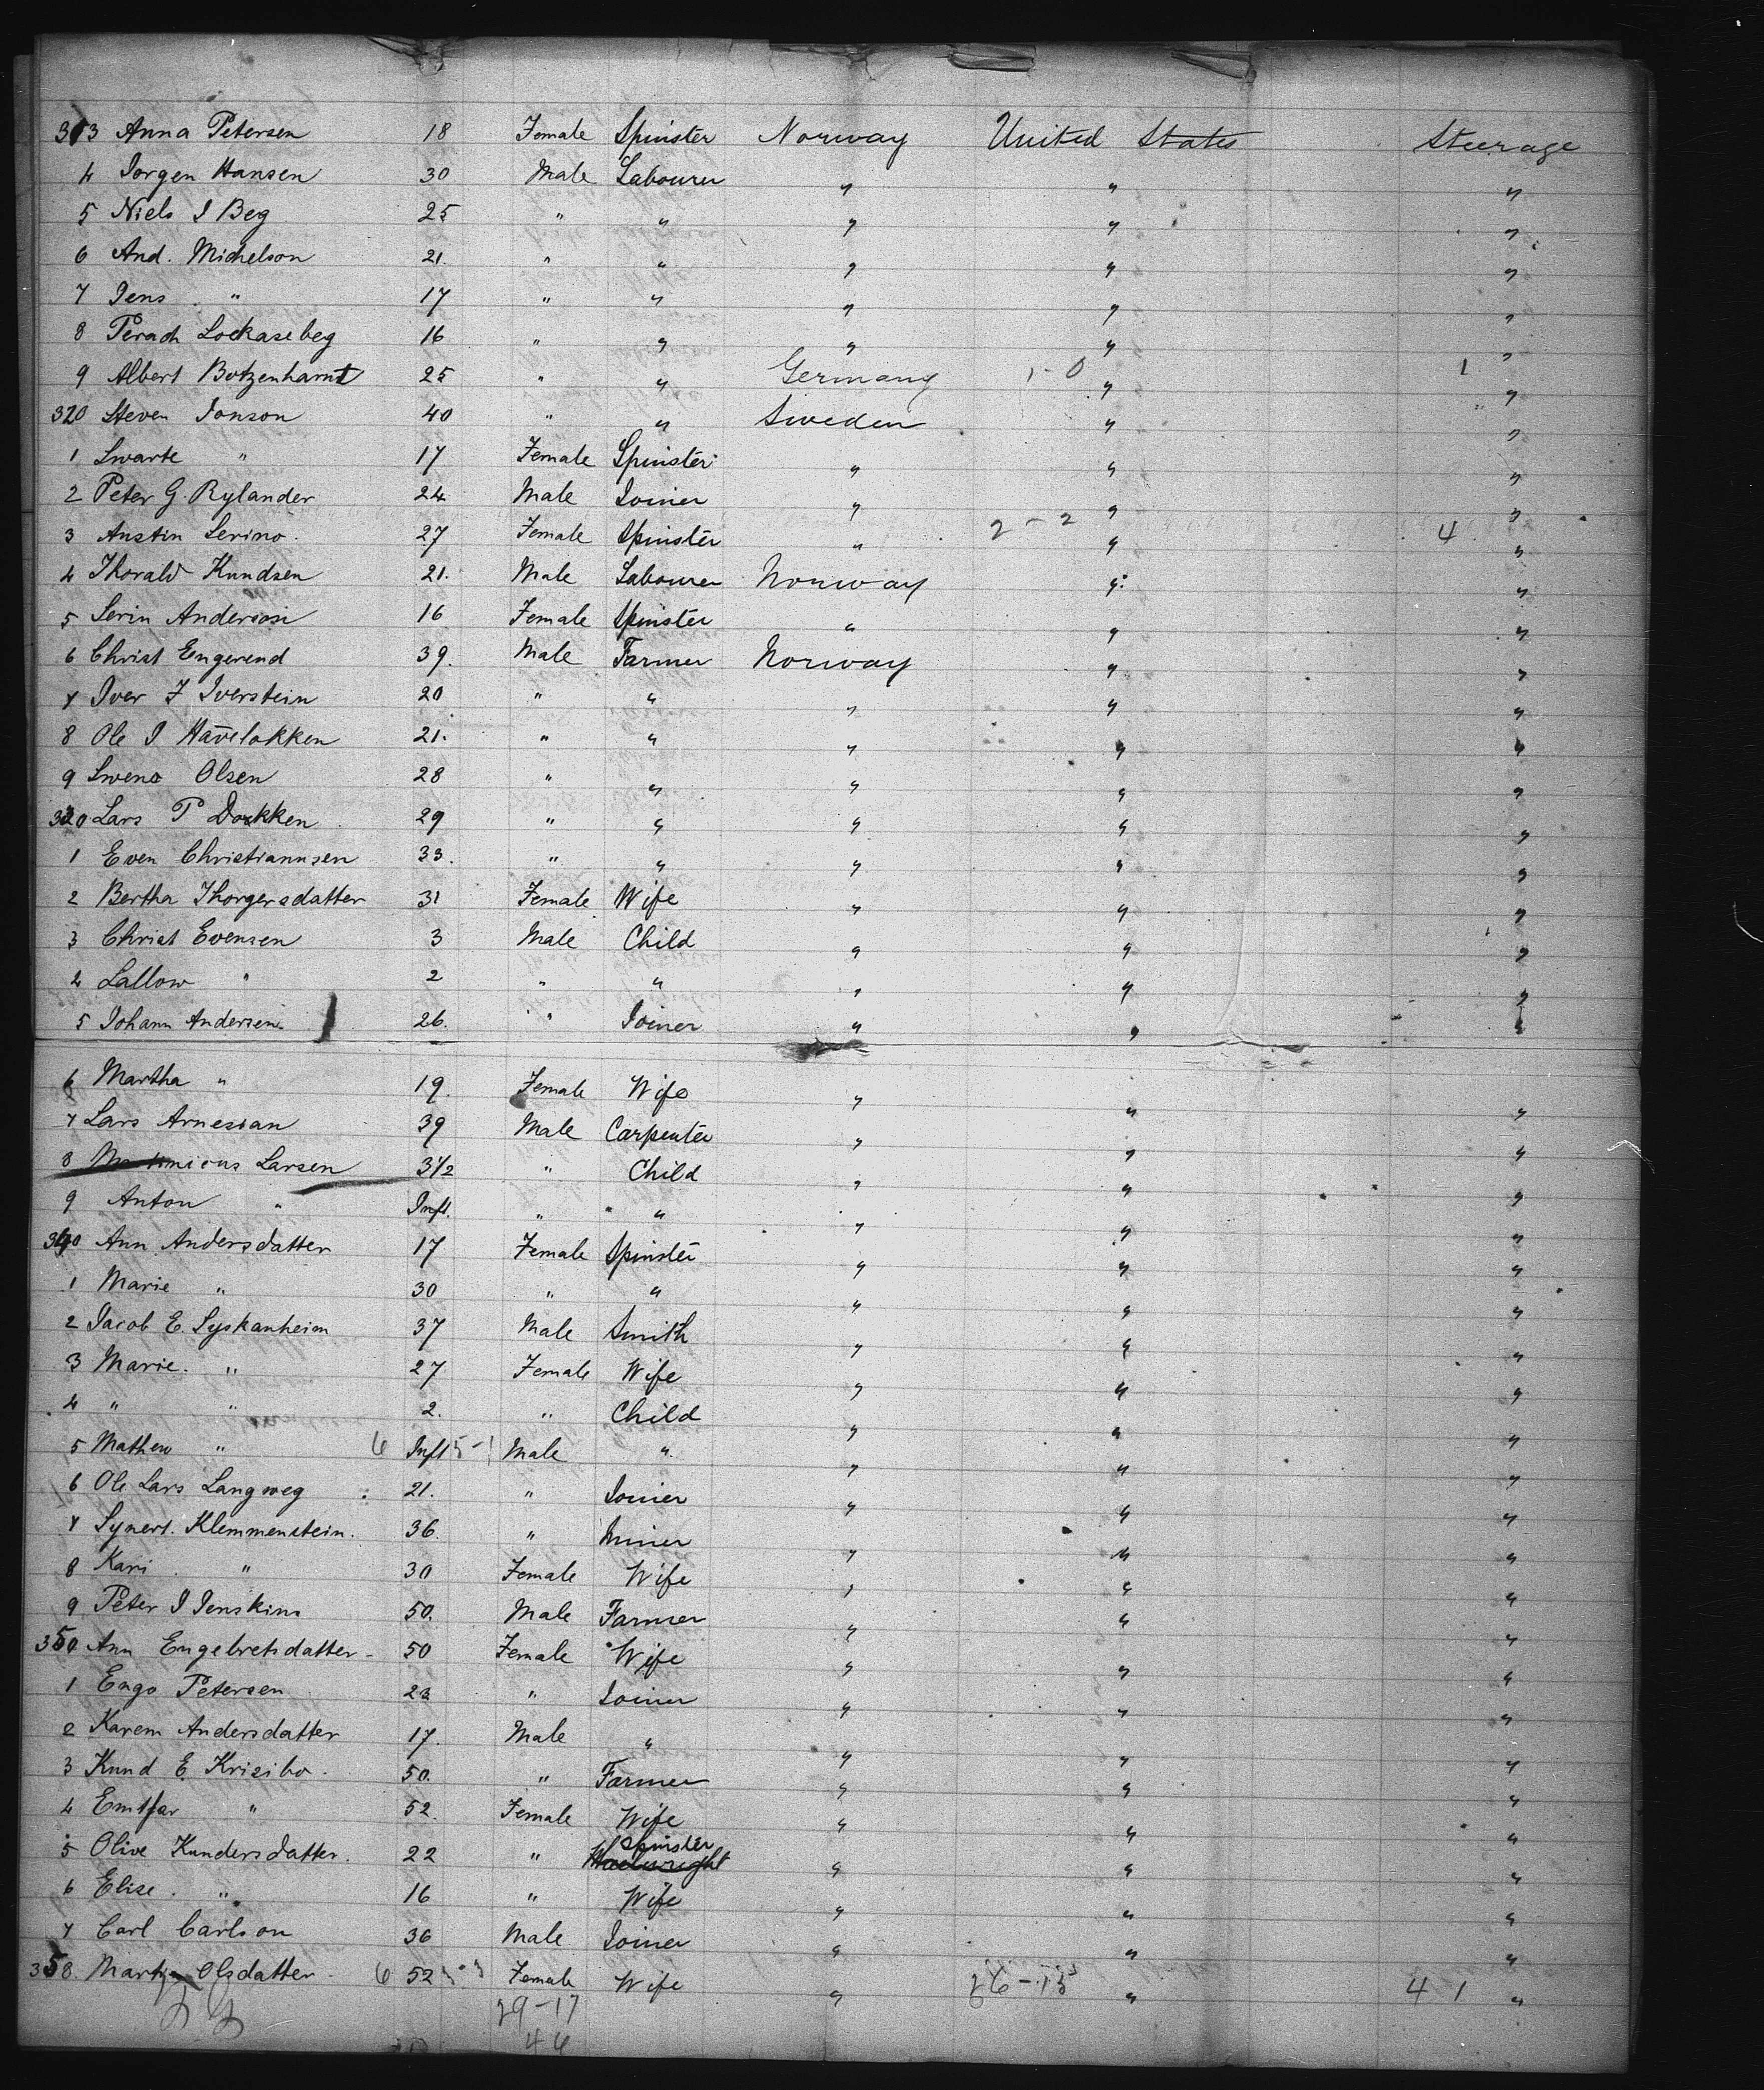 313 Anna Petersen 18 Female Spinster Norway United States Steerage
4 Jorgen Hansen 30 Male Labourer " " "
5 Niels J Beg 25 " " " " "
6 And. Michelson 21. " " " " "
7 Jens " 17 " " " " "
8 Perach Lockaseberg 16 " " " " "
9 Albert Botzenhamt 25 " " Germany 1-0 " 1 "
320 Steven Jonson 40 " " Sweden " "
1 Swarte " 17 Female Spinster " " "
2 Peter G. Rylander 24 Male Joiner " " "
3 Austin Serino. 27 Female Spinster " 2-2 " 4 "
4 Thorald Kundsen 21. Male Labourer Norway " "
5 Serin Anderson 16 Female Spinster " " "
6 Christ Engerend 39. Male Farmer Norway " "
7 Iver I Iverstein 20 " " " " "
8 Ole J Havelokken 21. " " " " "
9 Sweno Olsen 28 " " " " "
330 Lars P Dokken 29 " " " " "
1 Even Christiannsen 33. " " " " "
2 Bertha Thorgersdatter 31 Female Wife " " "
3 Christ Evensen 3 Male Child " " "
4 Lallow " 2 " " " " "
5 Johann Andersen 26. " Joiner " " "
6 Martha " 19. Female Wife " " "
7 Lars Arnesian 39 Male Carpenter " " "
8 Larsen 3 1/2 " Child " " "
9 Anton " Inft. " " " " "
340 Ann Andersdatter 17 Female Spinster " " "
1 Marie " 30 " " " " "
2 Jacob E. Lyskanheim 37 Male Smith " " "
3 Marie. " 27 Female Wife " " "
4 " " 2. " Child " " "
5 Mathew " 6 Inft 5-1 Male " " " "
6 Ole Lars Langweg 21. " Joiner " " "
7 Synert. Klemmenstein. 36. " Miner " " "
8 Kari " 30 Female Wife " " "
9 Peter J Jenskins 50. Male Farmer " " "
350 Ann Engebretsdatter 50 Female Wife " " "
1 Engo Petersen 23 " Joiner " " "
2 Karem Andersdatter 17. Male " " " "
3 Kund E. Krisibo. 50. " Farmer " " "
4 Emtfar " 52. Female Wife " " "
Spinster
5 Olive Kundersdatter. 22 " " " "
6 Elise. " 16 " Wife " " "
7 Carl Carlson 36 Male Joiner " " "
358. Olsdatter 6 52 3-3 Female Wife " 26-15 " 41 "
29-17
46